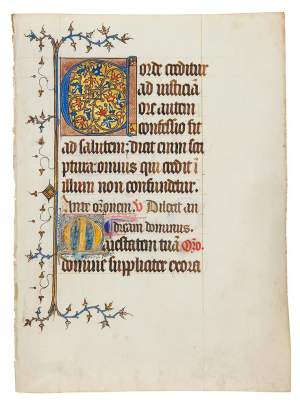 Corde creditur
ad iusticiā
ore autem
confessio fit
ad salutem; dicit enim scri
ptura: omnis qui credit ī
illum non confundetur.
Ante oꝛonem. V Dilexit an
dream dominus.
Maiestatem tuā Oꝛo.
domine suppliciter exora